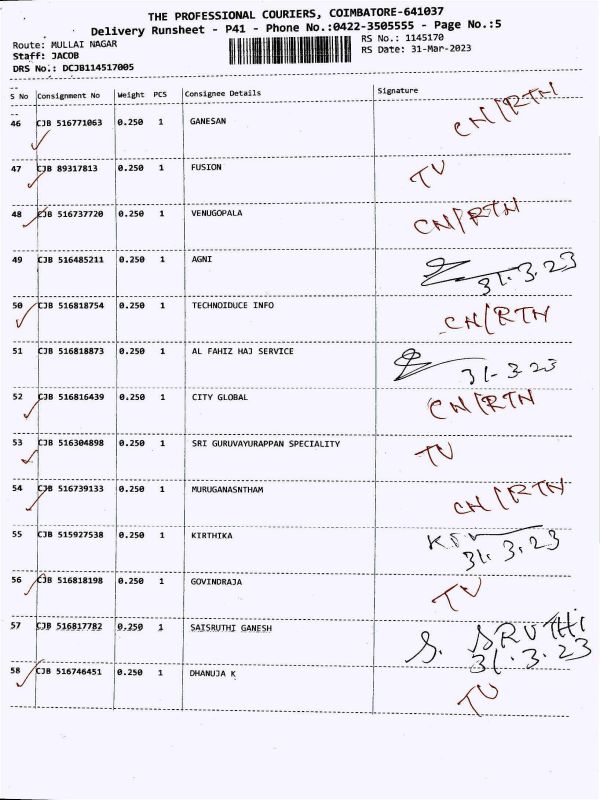 THE PROFESSIONAL COURIERS, COIMBATORE-641037
Delivery Runsheet - P41 - Phone No.:0422-3505555 - Page No.:5
Route: MULLAI NAGAR RS No.: 1145170
Staff: JACOB RS Date: 31-Mar-2023
DRS No.: DCJB114517005
--
S No Consignment No Weight PCS Consignee Details Signature
--
46 CJB 516771063 0.250 1 GANESAN CN/RTN
47 CJB 89317813 0.250 1 FUSION TV
48 CJB 516737720 0.250 1 VENUGOPALA CN/RTN
49 CJB 516485211 0.250 1 AGNI 31.3.23
50 CJB 516818754 0.250 1 TECHNOIDUCE INFO CN/RTN
51 CJB 516818873 0.250 1 AL FAHIZ HAJ SERVICE 31-3-23
52 CJB 516816439 0.250 1 CITY GLOBAL CN/RTN
53 CJB 516304898 0.250 1 SRI GURUVAYURAPPAN SPECIALITY TV
54 CJB 516739133 0.250 1 MURUGANASNTHAM CN/RTN
55 CJB 515927538 0.250 1 KIRTHIKA 31.3.23
56 CJB 516818198 0.250 1 GOVINDRAJA TV
57 CJB 516817782 0.250 1 SAISRUTHI GANESH S. SRUTHI
31.3.23
58 CJB 516746451 0.250 1 DHANUJA K TV